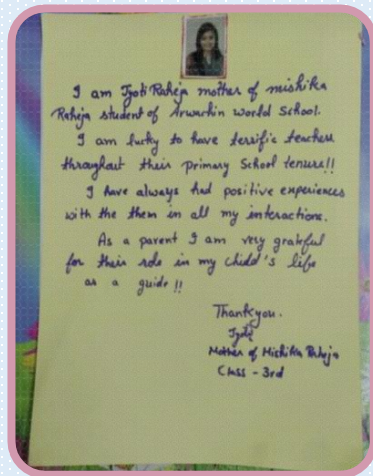 I am Jyoti Raheja mother of mishika
Raheja student of Arwachin World School.
I am lucky to have terrific teachers
throughout their primary School tenure!!
I have always had positive experiences
with the them in all my interactions.
As a parent I am very grateful
for their role in my child's life
as a guide !!
Thankyou.
Jyoti
Mother of Mishika Raheja
Class - 3rd